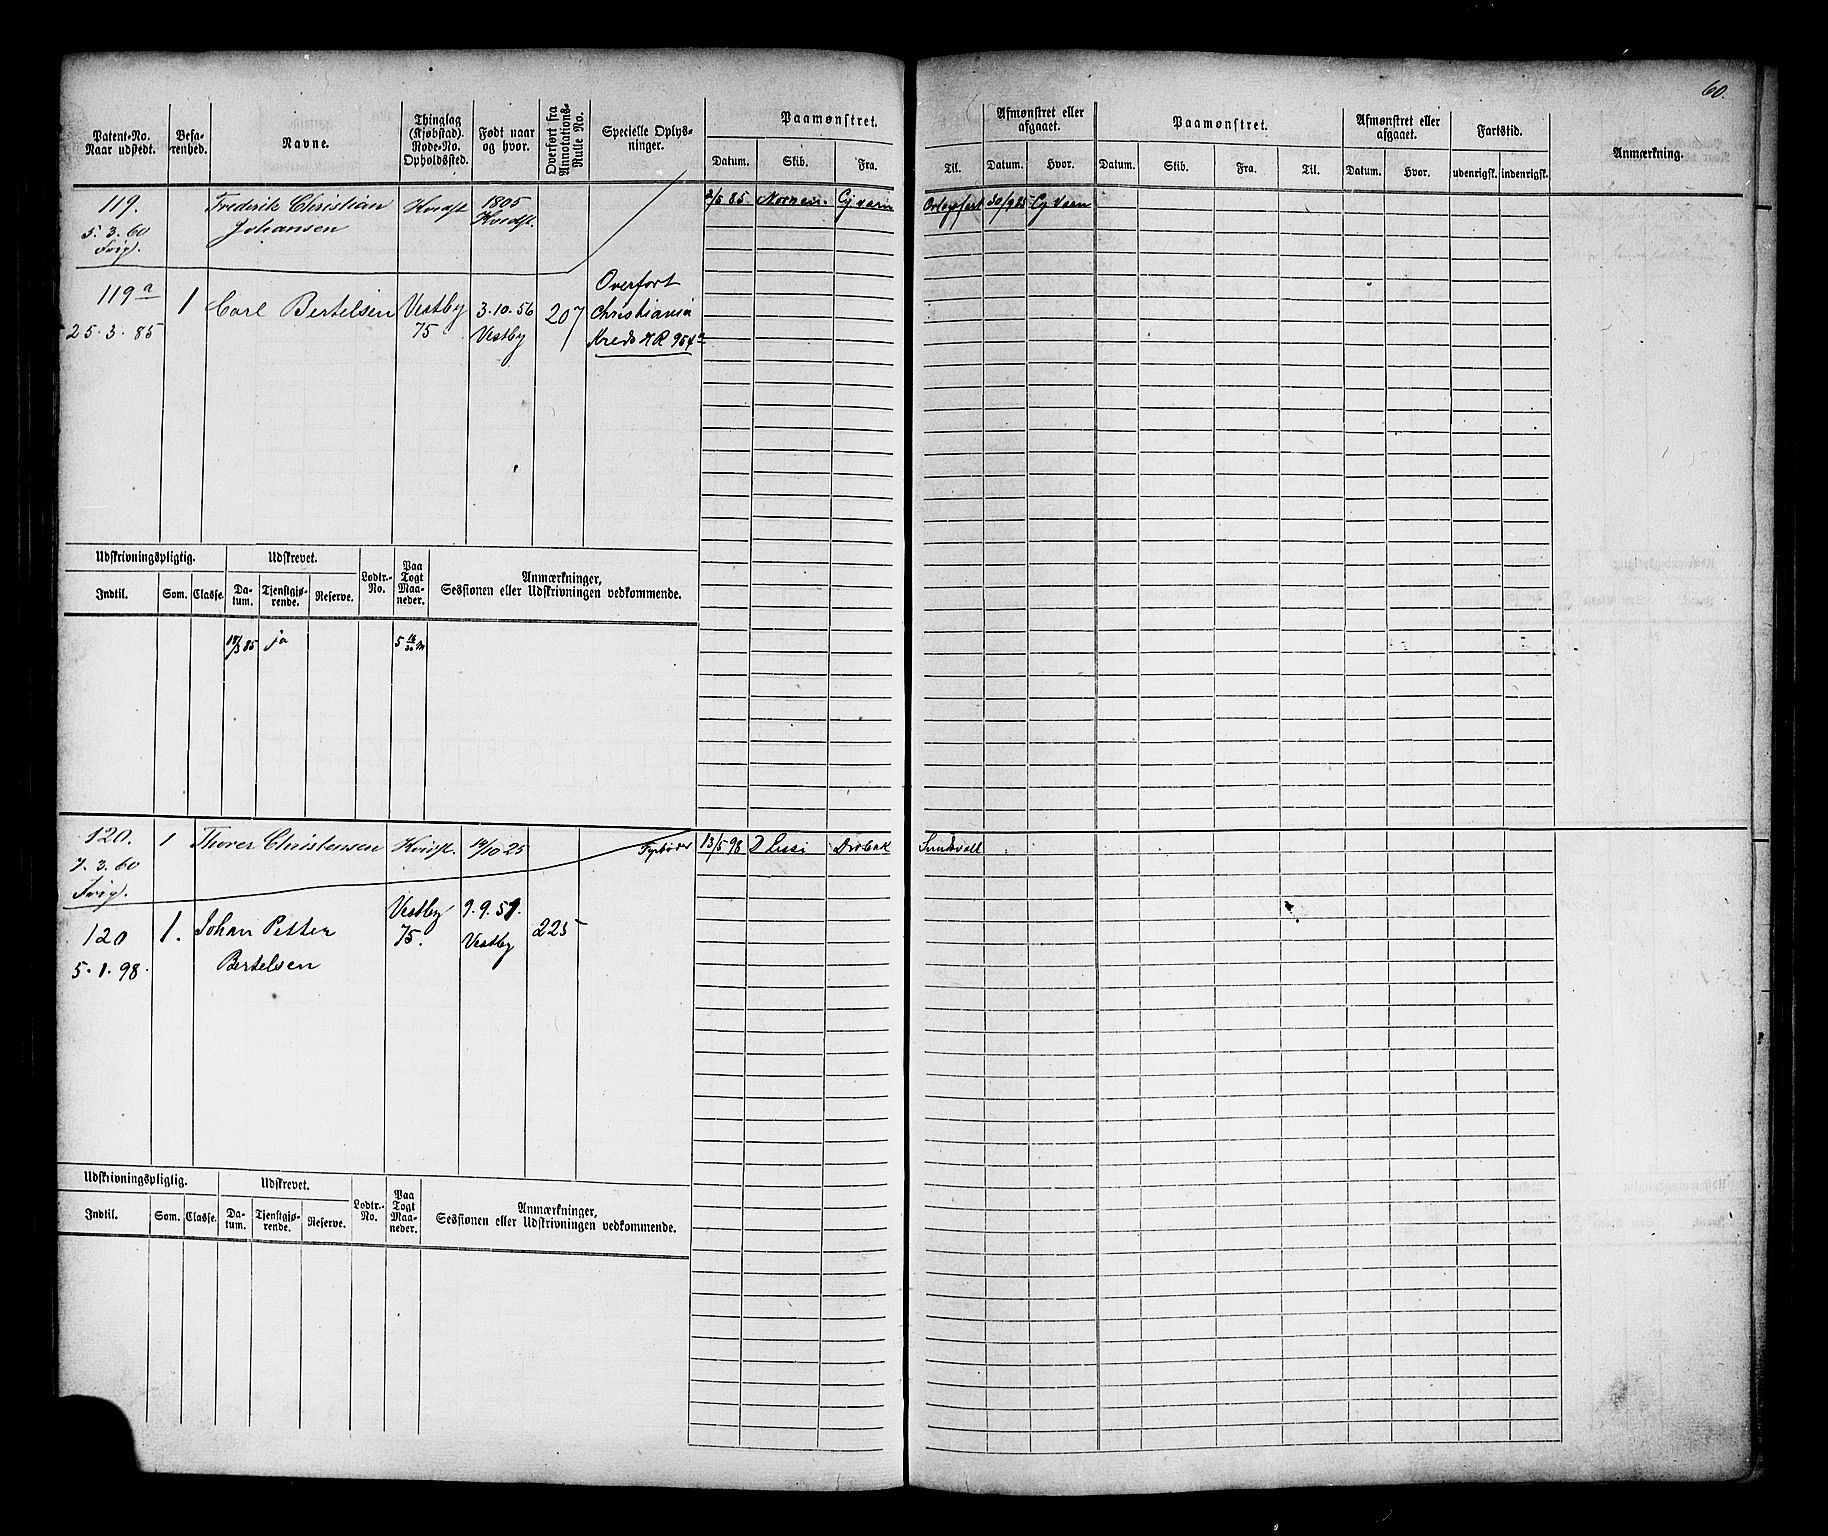 60.
Patent-No. Naar udstedt.
Befarenhed.
Navne.
Thinglag (Kjøbstad). Rode-No. Opholdssted.
Født naar og hvor.
Overført fra Annotations-Rulle No.
Specielle Oplysninger.
Paamønstret.
Datum. Skib. Fra. Til.
Afmønstret eller afgaaet.
Datum. Hvor.
Paamønstret.
Datum. Skib. Fra. Til.
Afmønstret eller afgaaet.
Datum. Hvor.
Fartstid.
udenrigsk. indenrigsk.
Anmærkning.
119.
5.3.60
Frig.
Frederik Christian
Johansen
Hvidst
1805
Hvidst.
2/5 85
30/9 85
119 a
25.3.85
1
Carl Bertelsen
Vestby
75
3.10.56
Vestby
207
Overført
Christiania
Kreds
Udskrivningspligtig.
Indtil. Som. Classe.
Udskrevet.
Datum. Tjenstgjørende. Reserve.
Lodtr.-No.
Paa Togt Maaneder.
Anmærkninger,
Sessionen eller Udskrivningen vedkommende.
ja
120.
7.3.60
Frig.
1
Thorer Christensen
Hvidst.
14/10 25
Fyrbøder
13/5 98
D Lissi
Drøbak
Sundsvall
120
5.1.98.
1.
Johan Petter
Bertelsen
Vestby
75.
Vestby
225
Udskrivningspligtig.
Indtil. Som. Classe.
Udskrevet.
Datum. Tjenstgjørende. Reserve.
Lodtr.-No.
Paa Togt Maaneder.
Anmærkninger,
Sessionen eller Udskrivningen vedkommende.